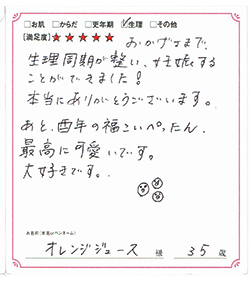 □お肌 □からだ □更年期 ☑生理 □その他
【満足度】★★★★★
おかげさまで、
生理周期が整い、妊娠する
ことができました!
本当にありがとうございます。
あと、酉年の福こいぺったん、
最高に可愛いです。
大好きです。
お名前(本名orペンネーム)
オレンジジュース 様 35歳